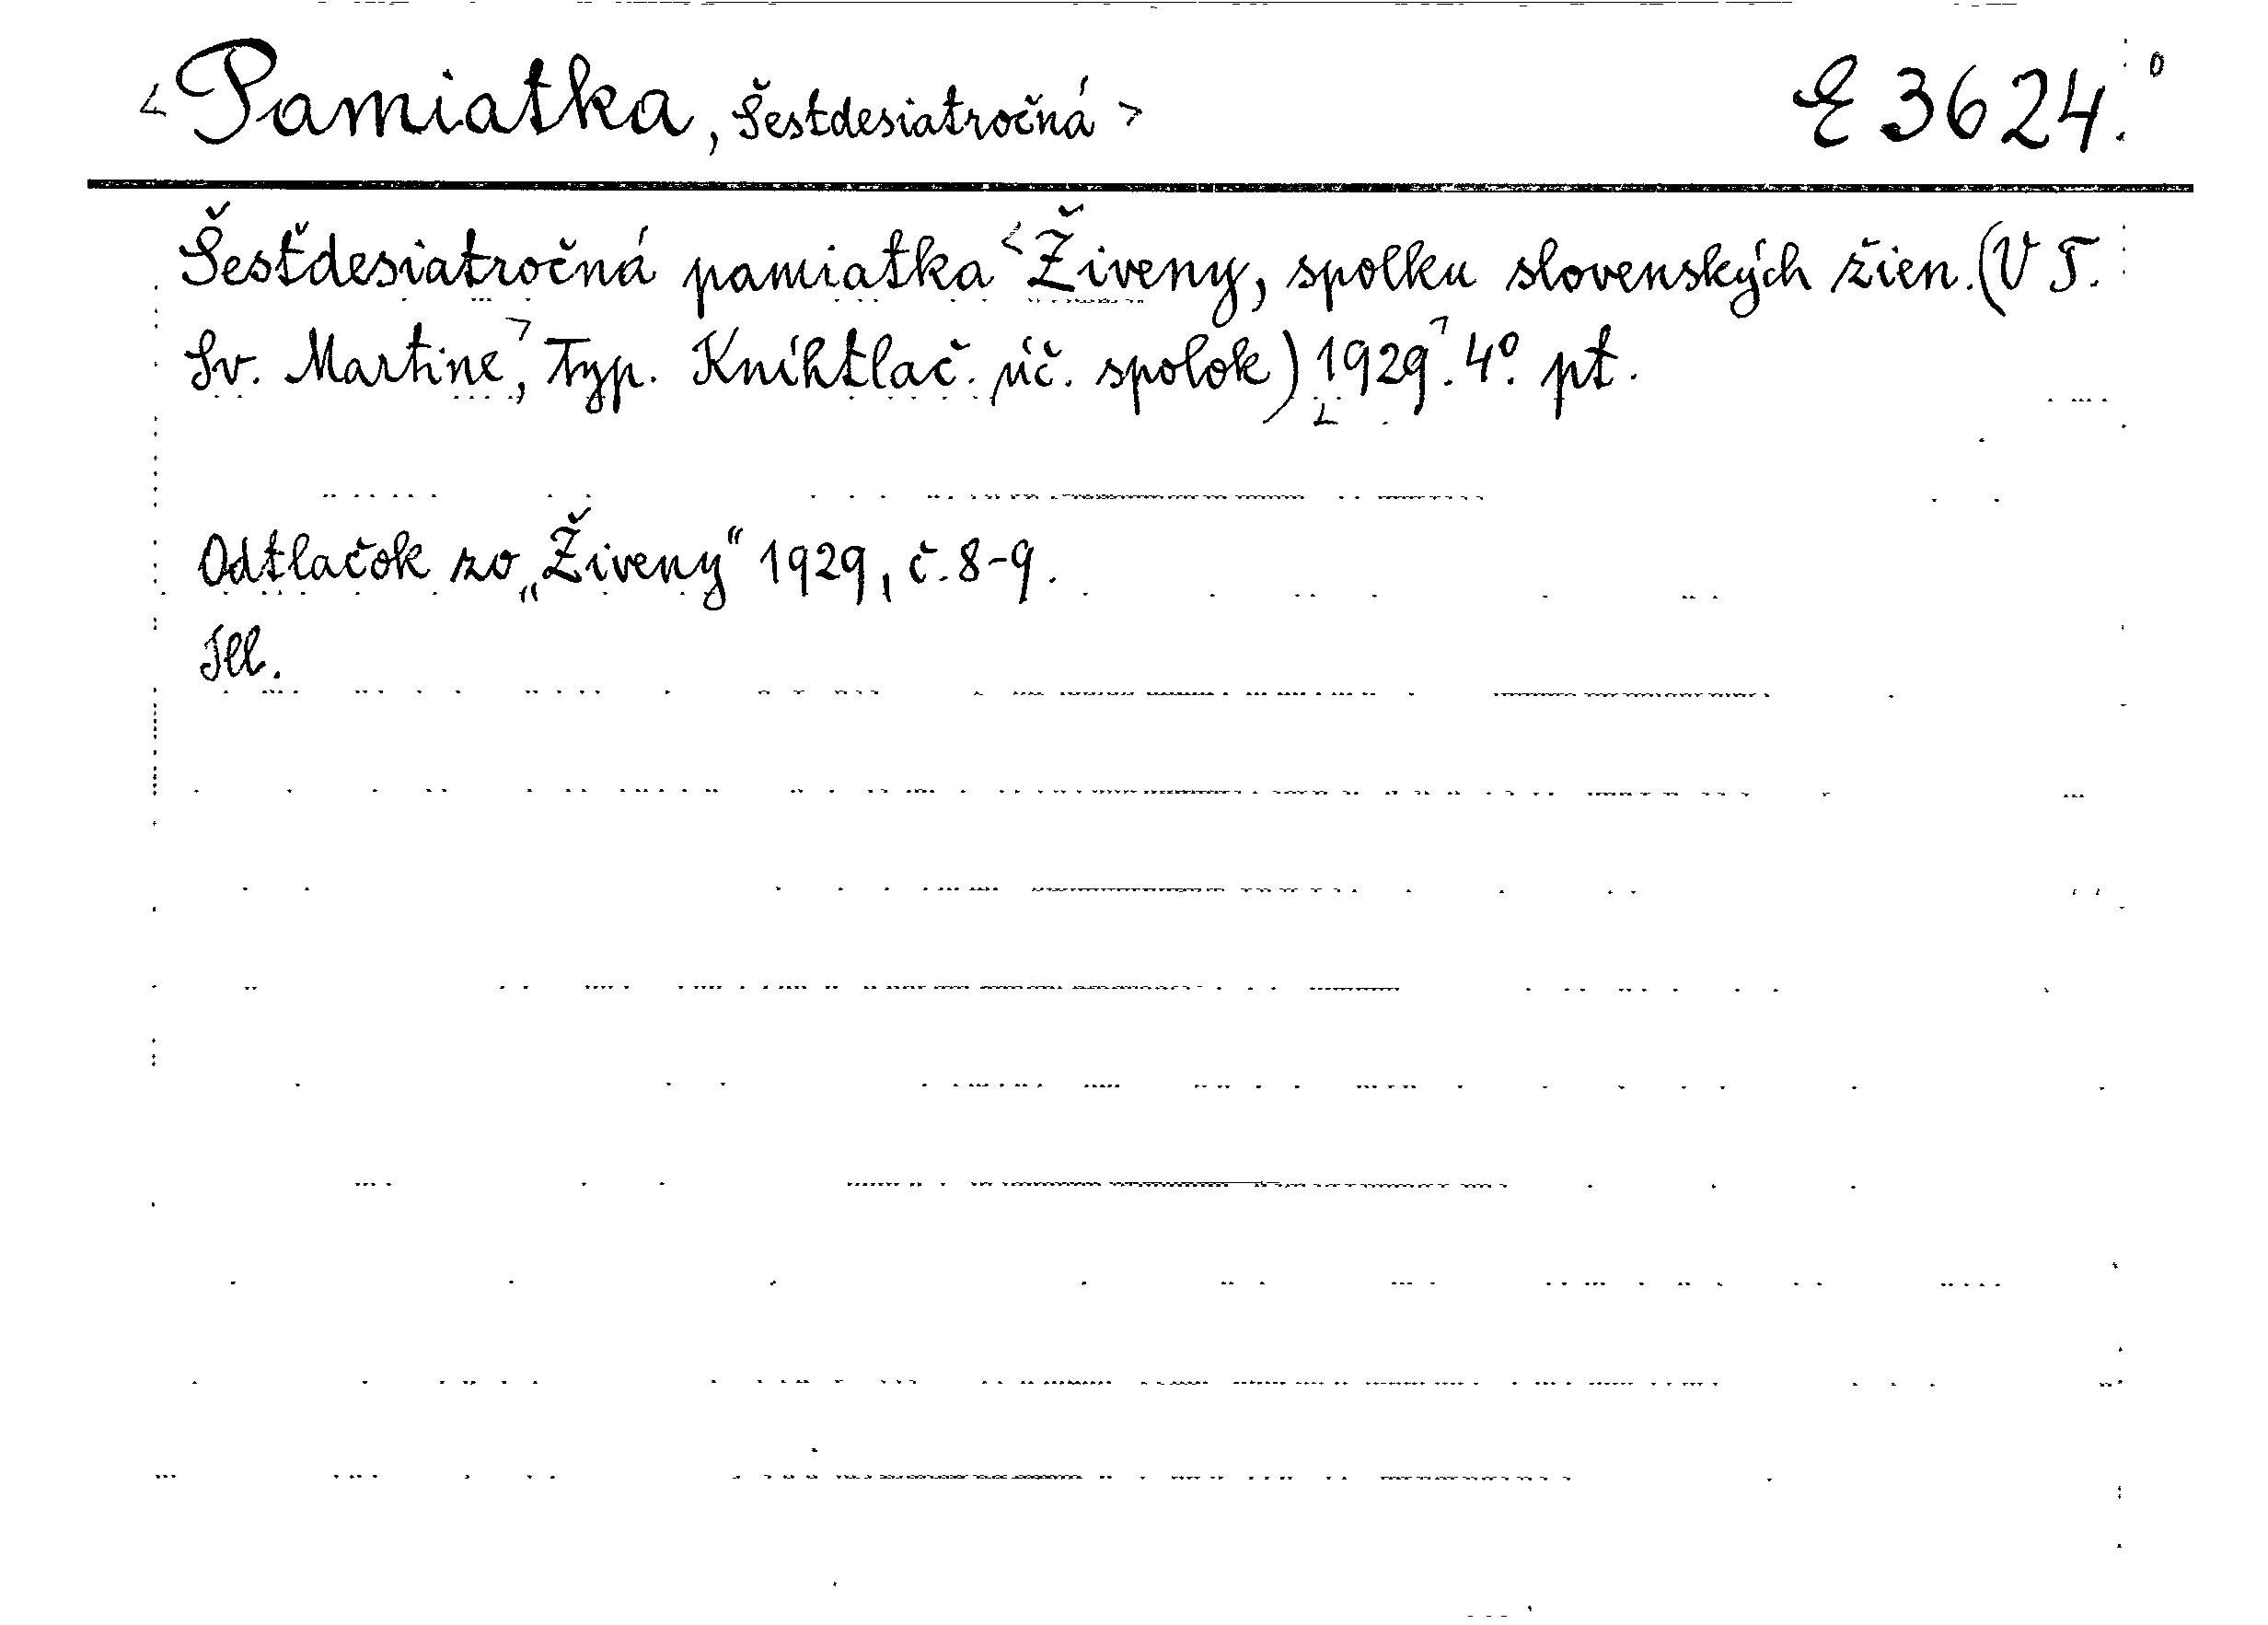 <Pamiatka, Šestdesiatročná> E 3624.⁰
Šesťdesiatročná pamiatka <Živeny, spolku slovenských žien. (V T.
Sv. Martine>, Typ. Kníhtlač. úč. spolok) <1929>. 4⁰. pt.
Odtlačok zo „Živeny“ 1929, č. 8-9.
Ill.